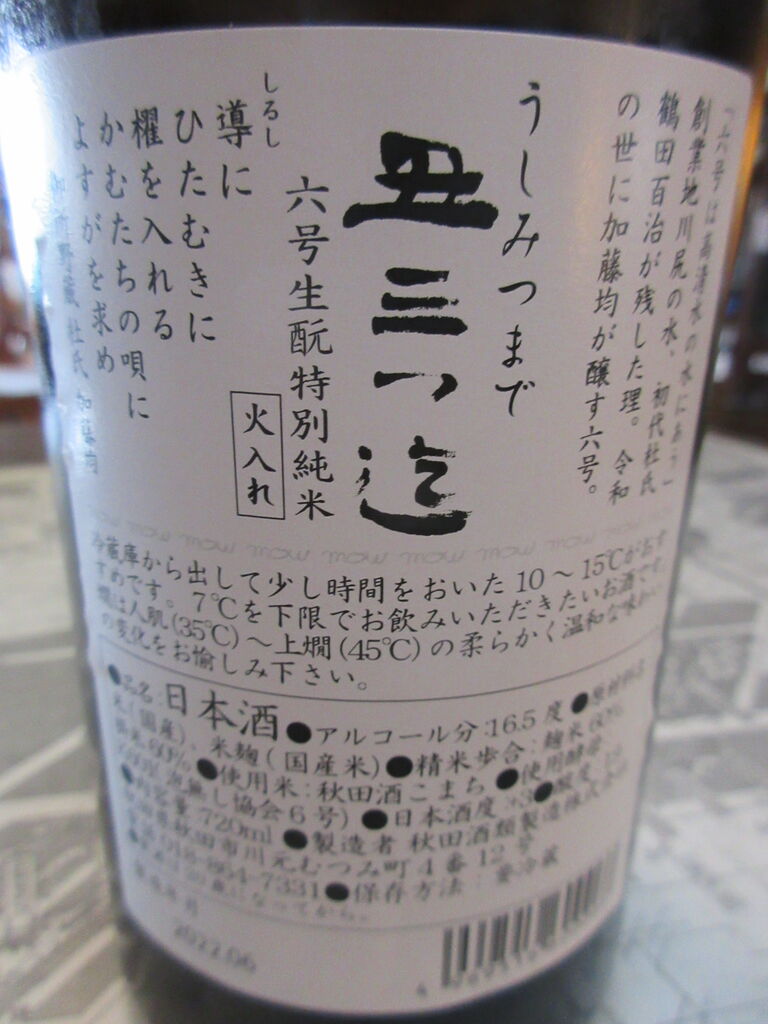 「六号は高清水の水にあう」
創業地川尻の水、初代杜氏
鶴田百治が残した理。令和
の世に加藤均が醸す六号。
うしみつまで
丑三つ迄
六号生酛特別純米
火入れ
しるし
導に
ひたむきに
櫂を入れる
かむたちの唄に
よすがを求め
御所野蔵 杜氏 加藤均
冷蔵庫から出して少し時間をおいた10～15℃がおす
すめです。7℃を下限でお飲みいただきたいお酒です。
燗は人肌(35℃)～上燗(45℃)の柔らかく温和な味わい
の変化をお愉しみ下さい。
●品名:日本酒●アルコール分:16.5度●原材料名
米(国産)、米麹(国産米)●精米歩合:麹米60%
掛米60%●使用米:秋田酒こまち●使用酵母
(泡無し協会6号)●日本酒度:+3●酸度:
●内容量:720ml●製造者 秋田酒類製造株式会社
秋田県秋田市川元むつみ町4番12号
018-864-7331●保存方法:要冷蔵
20歳になってから。
製造年月
2022.06